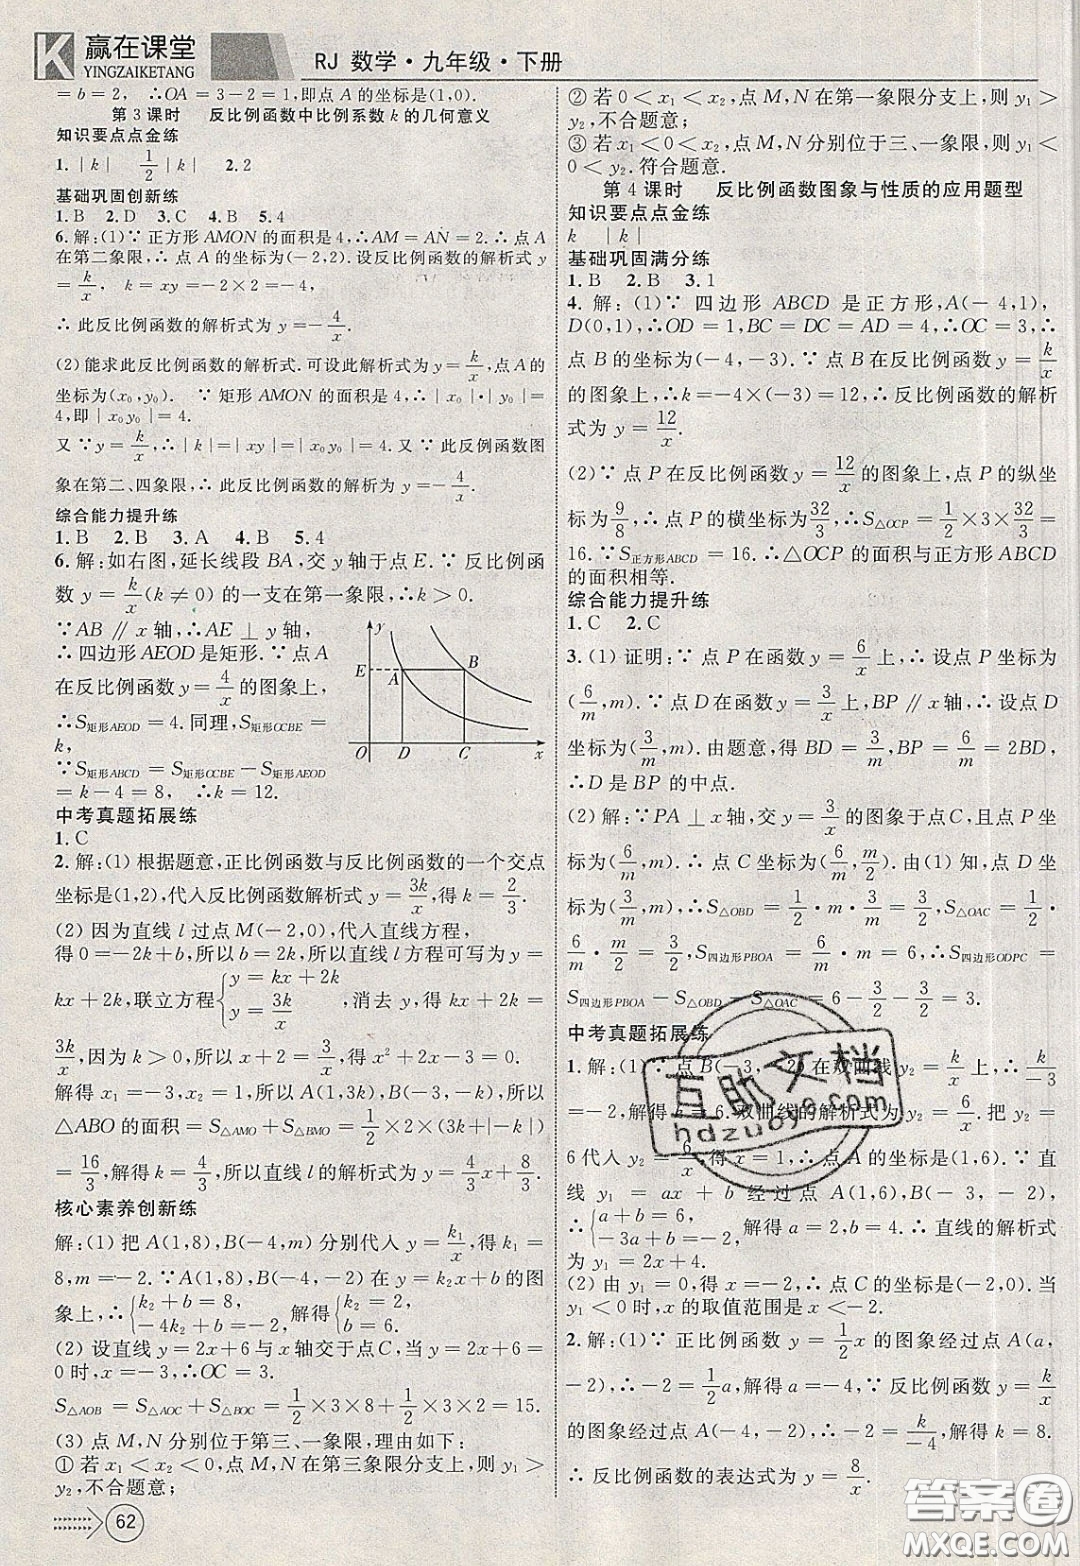 K 赢在课堂
YINGZAIKETANG
RJ 数学·九年级·下册
=b=2, ∴OA=3-2=1,即点 A 的坐标是(1,0).
第 3 课时 反比例函数中比例系数 k 的几何意义
知识要点点金练
1. |k| 1/2|k| 2. 2
基础巩固创新练
1. B 2. D 3. C 4. B 5. 4
6. 解:(1)∵正方形 AMON 的面积是 4,∴AM=AN=2.∴点 A
在第二象限,∴点 A 的坐标为(-2,2). 设反比例函数的解析式 y
=k/x, k=xy=-2×2=-4,
∴此反比例函数的解析式为 y=-4/x.
(2)能求此反比例函数的解析式. 可设此解析式为 y=k/x,点 A 的
坐标为(x₀,y₀). ∵矩形 AMON 的面积是 4,∴|x₀|·|y₀|=
4,即|x₀y₀|=4.
又∵y=k/x,∴|k|=|xy|=|x₀y₀|=4. 又∵此反例函数图
象在第二、四象限,∴此反比例函数的解析式为 y=-4/x.
综合能力提升练
1. B 2. B 3. A 4. B 5. 4
6. 解:如右图,延长线段 BA,交 y 轴于点 E. ∵反比例函
数 y=k/x(k≠0)的一支在第一象限,∴k>0.
∵AB∥x 轴,∴AE⊥y 轴,
∴四边形 AEOD 是矩形. ∵点 A
在反比例函数 y=4/x 的图象上,
∴S矩形AEOD=4. 同理,S矩形OCBE=
k,
∵S矩形ABCD=S矩形OCBE-S矩形AEOD
=k-4=8, ∴k=12.
y
E A B
O D C x
中考真题拓展练
1. C
2. 解:(1)根据题意,正比例函数与反比例函数的一个交点
坐标是(1,2),代入反比例函数解析式 y=3k/x,得 k=2/3.
(2)因为直线 l 过点 M(-2,0),代入直线方程,
得 0=-2k+b,所以 b=2k,所以直线 l 方程可写为 y=
kx+2k,联立方程{y=kx+2k, y=3k/x ,消去 y,得 kx+2k=
3k/x,因为 k>0,所以 x+2=3/x,得 x²+2x-3=0.
解得 x₁=-3,x₂=1,所以 A(1,3k),B(-3,-k),所以
△ABO 的面积=S△AMO+S△BMO=1/2×2×(3k+|-k|)
=16/3,解得 k=4/3,所以直线 l 的解析式为 y=4/3x+8/3.
核心素养创新练
解:(1)把 A(1,8),B(-4,m)分别代入 y=k₁/x,得 k₁=
8,m=-2. ∵A(1,8),B(-4,-2)在 y=k₂x+b 的图
象上,∴{k₂+b=8, -4k₂+b=-2, 解得{k₂=2, b=6.
(2)设直线 y=2x+6 与 x 轴交于点 C,当 y=2x+6=
0 时,x=-3,∴OC=3.
S△AOB=S△AOC+S△BOC=1/2×3×8+1/2×3×2=15.
(3)点 M,N 分别位于第三、一象限,理由如下:
①若 x₁<x₂<0,点 M,N 在第三象限分支上,则 y₁>
y₂,不合题意;
②若 0<x₁<x₂,点 M,N 在第一象限分支上,则 y₁>
y₂,不合题意;
③若 x₁<0<x₂,点 M,N 分别位于三、一象限,则 y₁<
0<y₂. 符合题意.
第 4 课时 反比例函数图象与性质的应用题型
知识要点点金练
k |k|
基础巩固满分练
1. B 2. B 3. 1
4. 解:(1)∵四边形 ABCD 是正方形,A(-4,1),
D(0,1),∴OD=1,BC=DC=AD=4,∴OC=3,∴
点 B 的坐标为(-4,-3). ∵点 B 在反比例函数 y=k/x
的图象上,∴k=-4×(-3)=12,∴反比例函数的解析
式为 y=12/x.
(2)∵点 P 在反比例函数 y=12/x 的图象上,点 P 的纵坐
标为9/8,∴点 P 的横坐标为32/3,∴S△OCP=1/2×3×32/3=
16. ∵S正方形ABCD=16. ∴△OCP 的面积与正方形 ABCD
的面积相等.
综合能力提升练
1. C 2. C
3. (1)证明:∵点 P 在函数 y=6/x 上,∴设点 P 坐标为
(6/m,m). ∵点 D 在函数 y=3/x 上,BP∥x 轴,∴设点 D
坐标为(3/m,m). 由题意,得 BD=3/m,BP=6/m=2BD,
∴D 是 BP 的中点.
(2)解:∵PA⊥x 轴,y=3/x 的图象于点 C,且点 P 坐
标为(6/m,m). ∴点 C 坐标为(6/m,m/2). 由(1)知,点 D 坐
标为(3/m,m),∴S△OBD=1/2·m·3/m=3/2,S△OAC=1/2·
6/m·m/2=3/2,S四边形PBOA=6/m·m=6,∴S四边形ODPC=
S四边形PBOA-S△OBD-S△OAC=6-3/2-3/2=3.
中考真题拓展练
1. 解:(1)∵点 B(-3,-2)在双曲线 y₂=k/x 上,∴k/-3
=-2,解得 k=6. 双曲线的解析式为 y₂=6/x. 把 y₂=
6 代入 y₂=6/x,得 x=1,∴点 A 的坐标为(1,6). ∵直
线 y₁=ax+b 经过点 A(1,6),B(-3,-2),
∴{a+b=6, -3a+b=-2, 解得 a=2,b=4. ∴直线的解析式
为 y₁=2x+4.
(2)由 y₁=0,得 x=-2,∴点 C 的坐标为(-2,0). 当
y₁<0 时,x 的取值范围是 x<-2.
2. 解:(1)∵正比例函数 y=1/2x 的图象经过点 A(a,
-2),∴-2=1/2a,解得 a=-4,∵反比例函数 y=k/x
的图象经过点 A(-4,-2),∴-2=k/-4,解得 k=8.
∴反比例函数的表达式为 y=8/x.
互助文档
hdzuoye.com
62
答案圈
MXQE.COM